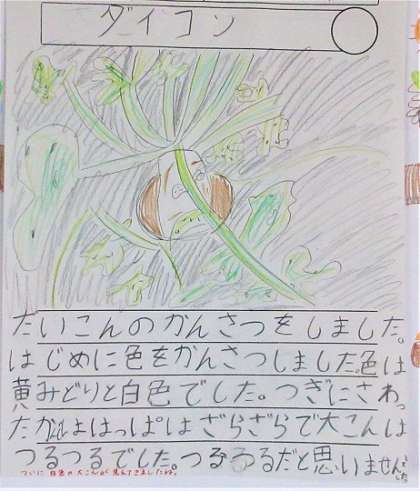 ダイコン
たいこんのかんさつをしました。
はじめに色をかんさつしました。色は
黄みどりと白色でした。つぎにさわっ
たかんしょはっぱはざらざらで大こんは
つるつるでした。つるつるだと思いません
でした
ついに 白色の大こんが見えてきましたね。